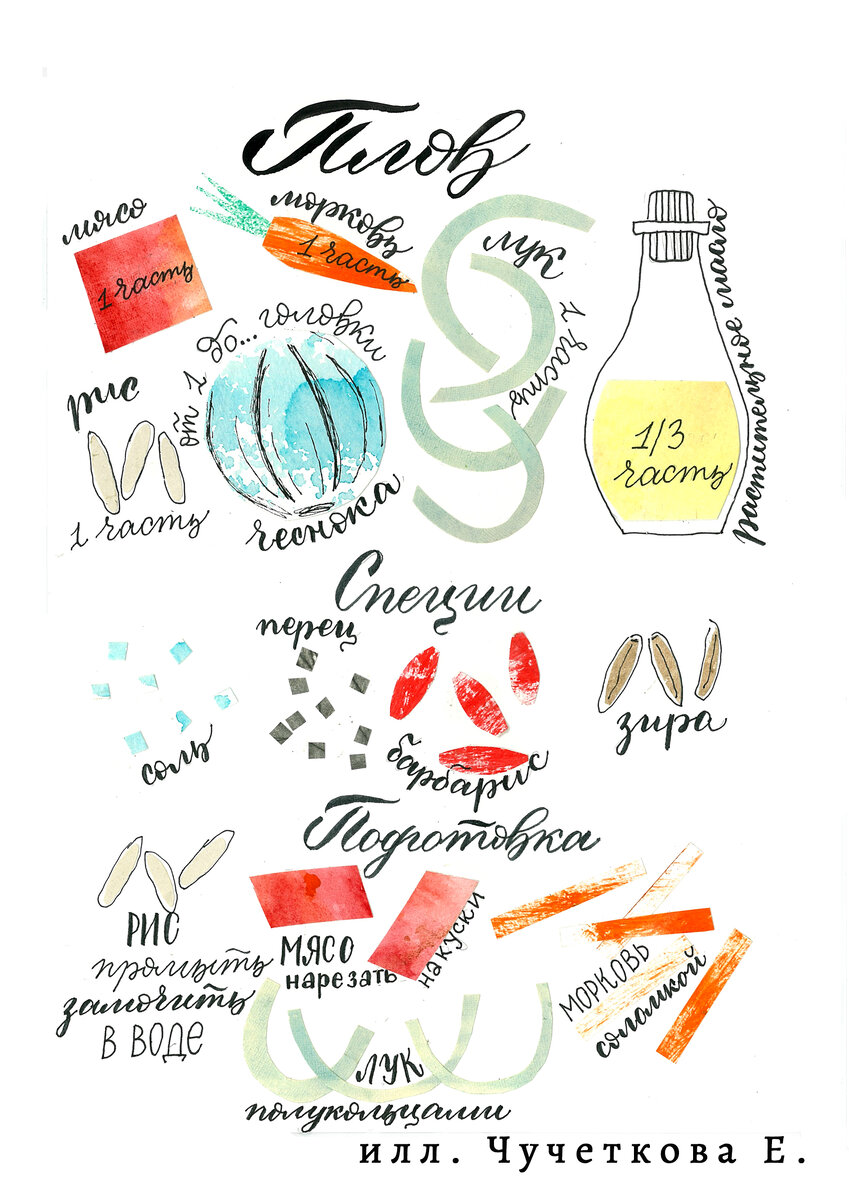 Плов
мясо
1 часть
морковь
1 часть
лук
1 часть
растительное масло
1/3
часть
рис
1 часть
от 1 до... головки
чеснока
Специи
соль
перец
барбарис
зира
Подготовка
РИС
промыть
замочить
в воде
МЯСО
нарезать
на куски
МОРКОВЬ
соломкой
ЛУК
полукольцами
илл. Чучеткова Е.